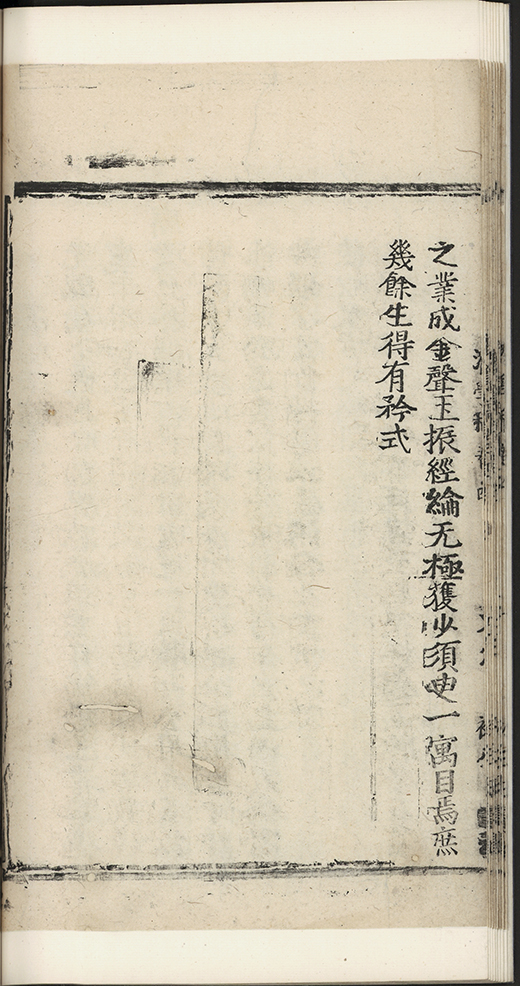 之業成金聲玉振經綸无極獲少須臾一寓目焉庶
幾餘生得有矜式